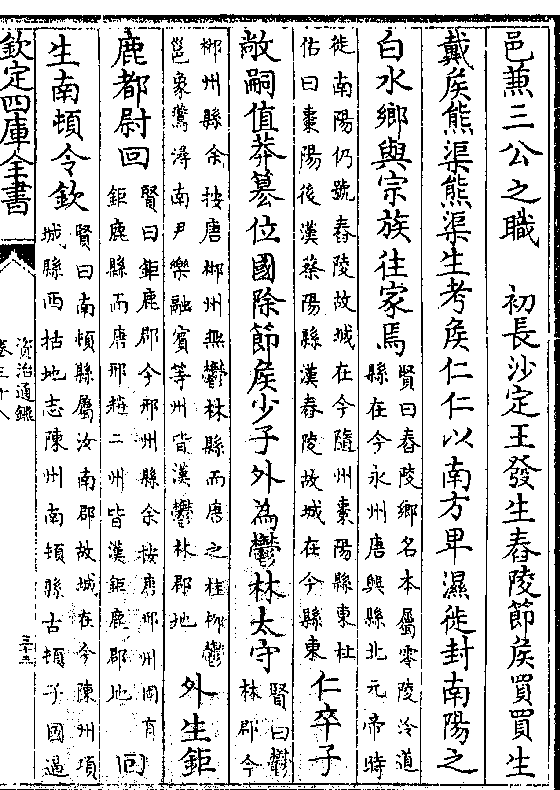 邑兼三公之職　初長沙定王發生舂陵節侯買買生
戴侯熊渠熊渠生考侯仁仁以南方卑濕徙封南陽之
白水鄉與宗族往家焉
賢曰舂陵鄉名本屬零陵泠道
縣在今永州唐興縣北元帝時
徙南陽仍號舂陵故城在今隨州棗陽縣東杜
佑曰棗陽後漢蔡陽縣漢舂陵故城在今縣東
仁卒子
敞嗣值莽篡位國除節侯少子外為鬱林太守
賢曰鬱
林郡今
郴州縣余按唐郴州無鬱林縣而唐之桂柳鬱
邕象鷰潯南尹樂融賓等州皆漢鬱林郡地
外生鉅
鹿都尉回
賢曰鉅鹿郡今邢州縣余按唐邢州固有
鉅鹿縣而唐邢趙二州皆漢鉅鹿郡地
回
生南頓令欽
賢曰南頓縣屬汝南郡故城在今陳州項
城縣西括地志陳州南頓縣古頓子國逼
欽定四庫全書
資治通鑑
卷三十八
三十五